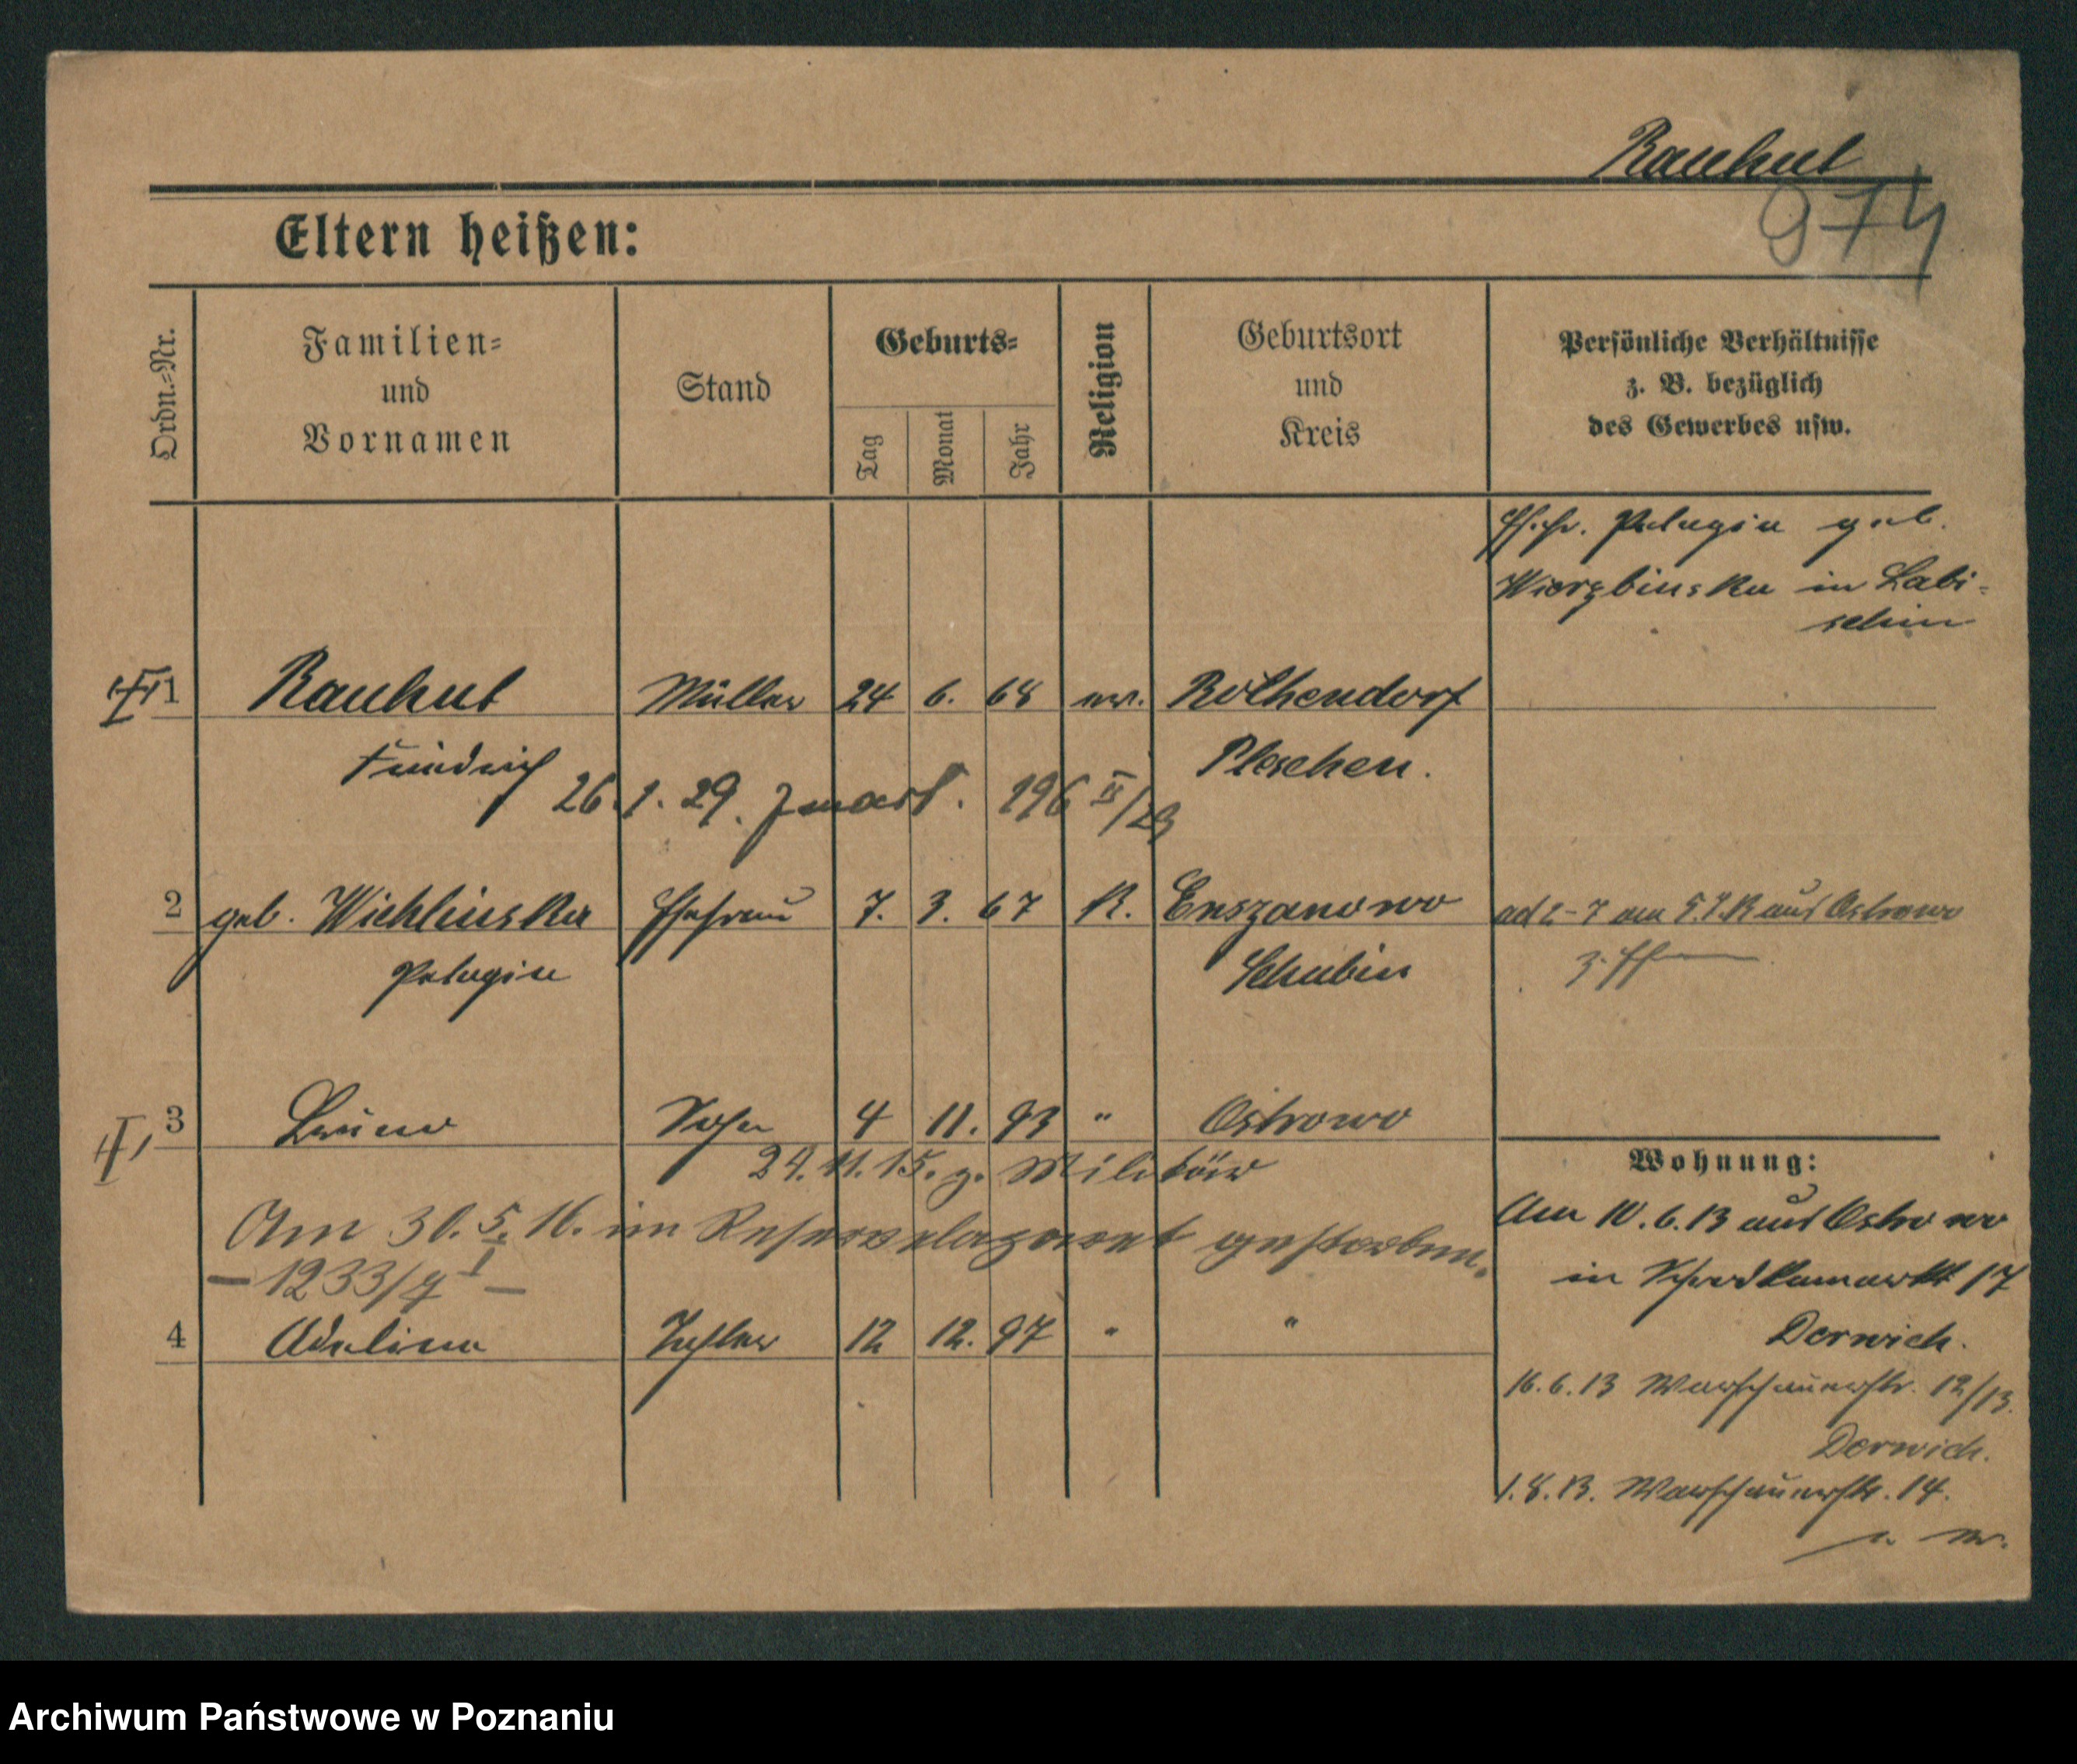 Rauhut
974
Eltern heißen:
Ordn.-Nr.
Familien-
und
Vornamen
Stand
Geburts-
Tag
Monat
Jahr
Religion
Geburtsort
und
Kreis
Persönliche Verhältnisse
z. B. bezüglich
des Gewerbes usw.
Ehefr. Pelagia geb.
Wierzbinska in Labi-
schin
1 Rauhut Müller 24 6. 68 ev. Rothendorf
Friedrich Pleschen.
26.1.29. 196 II/29
2 geb. Wichlinska Ehefrau 7. 3. 67 K. ad 2-7 aus Ostrowo
Pelagia Schubin
z. Ehem
3 Bruno Sohn 4 11. 93 " Ostrowo
24.11.15. z. Militär
Am 30.5.16. im Reservelazaret gestorben.
— 1233/I —
4 Adeline Tochter 12 12. 97 " "
Wohnung:
Am 10.6.13 aus Ostrowo
in 17
Derwich.
16.6.13 Warschauerstr. 12/13.
Derwich.
1.8.13. Warschauerstr. 14.
Archiwum Państwowe w Poznaniu